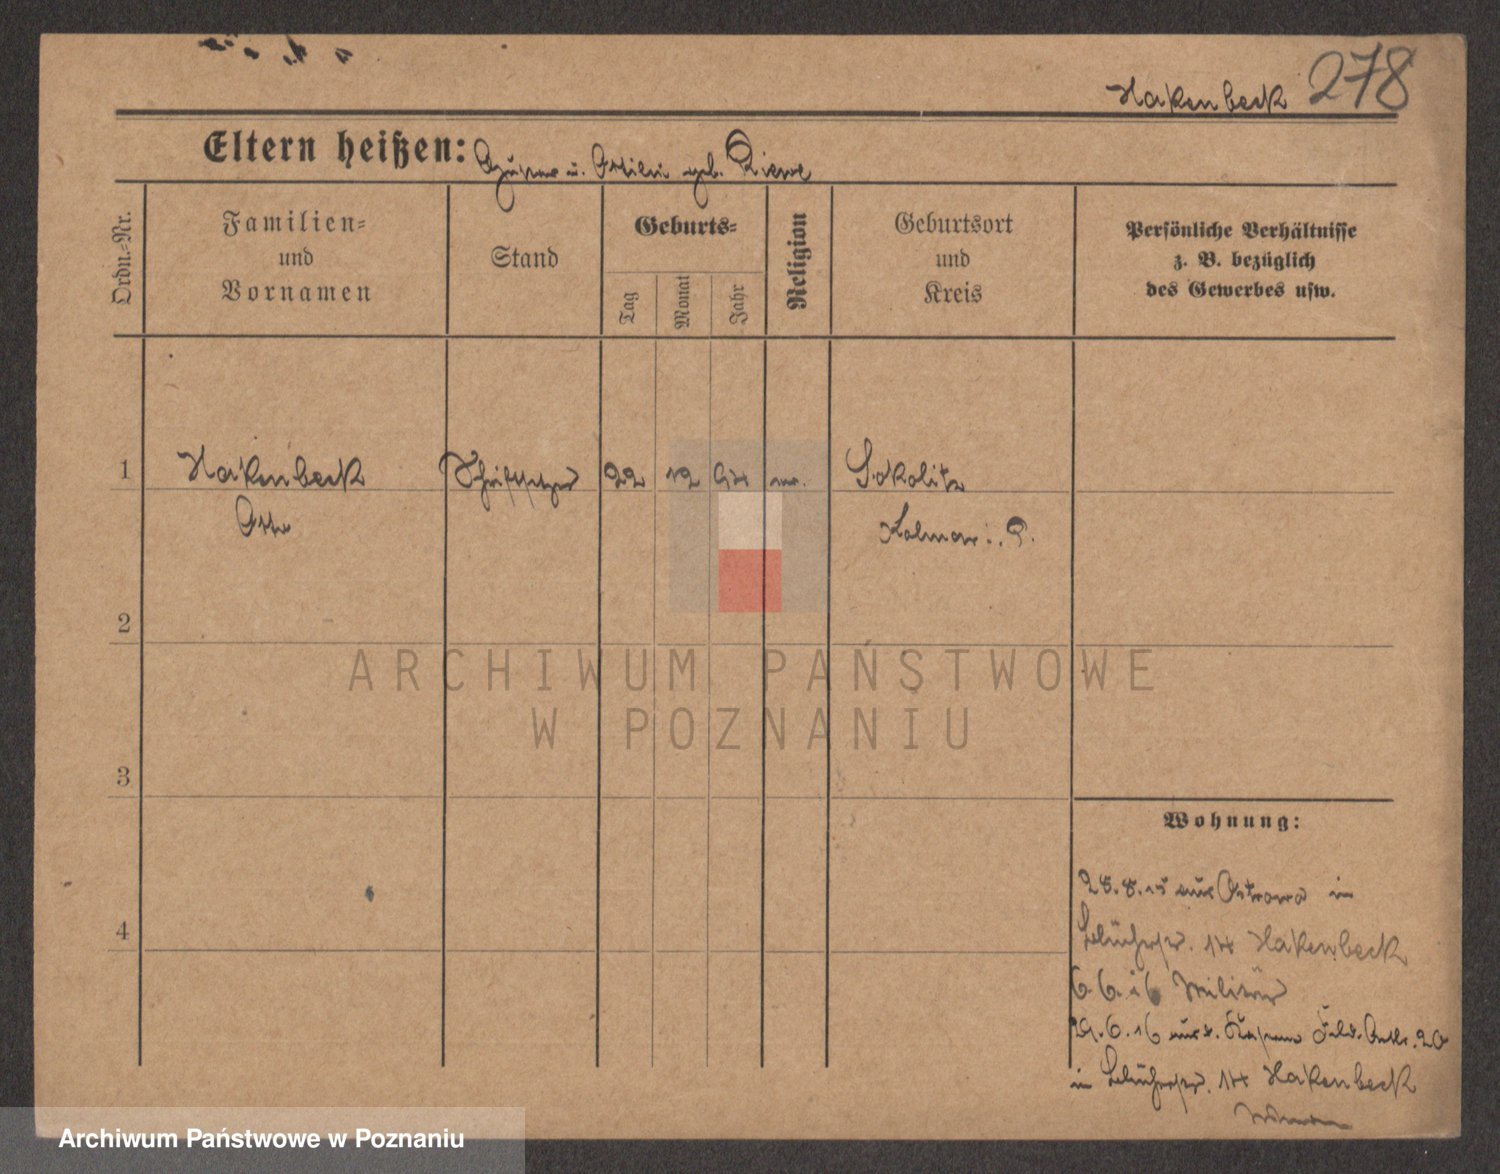 Hakenbeck 278
Eltern heißen: Gustav u. Ottilie geb.
Ordn.-Nr.
Familien-
und
Vornamen
Stand
Geburts-
Tag
Monat
Jahr
Religion
Geburtsort
und
Kreis
Persönliche Verhältnisse
z. B. bezüglich
des Gewerbes usw.
1 Hakenbeck Schriftsetzer 22 12 ev. Sokolitz
Otto Kolmar i. P.
2
3
4
Wohnung:
28.8.15 aus Ostrowo in
14 Hakenbeck
6.6.16 Militär
29.6.16 aus d. Kaserne Feld. Art. 20
in 14 Hakenbeck
ARCHIWUM PAŃSTWOWE
W POZNANIU
Archiwum Państwowe w Poznaniu